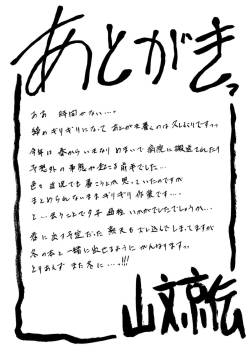 あとがきっ
ああ 時間がない…。
締めぎりぎりになって あとがき書くのは久しぶりですっっ
今年は 春からいきなり めまいで病院に搬送されたり
予想外の事態が起こる前半でした…
色々 直近でも書こうとか思っていたのですが
まとめられないままぎりぎり作業です…。
と…言うことで今年 曲独 いかがでしたでしょうか…
春に出す予定だった 新刊も ずれ込んでしまってますが
冬の本と一緒に出せるように がんばりますっっ
とりあえず また冬に…っ!!!
山文京伝